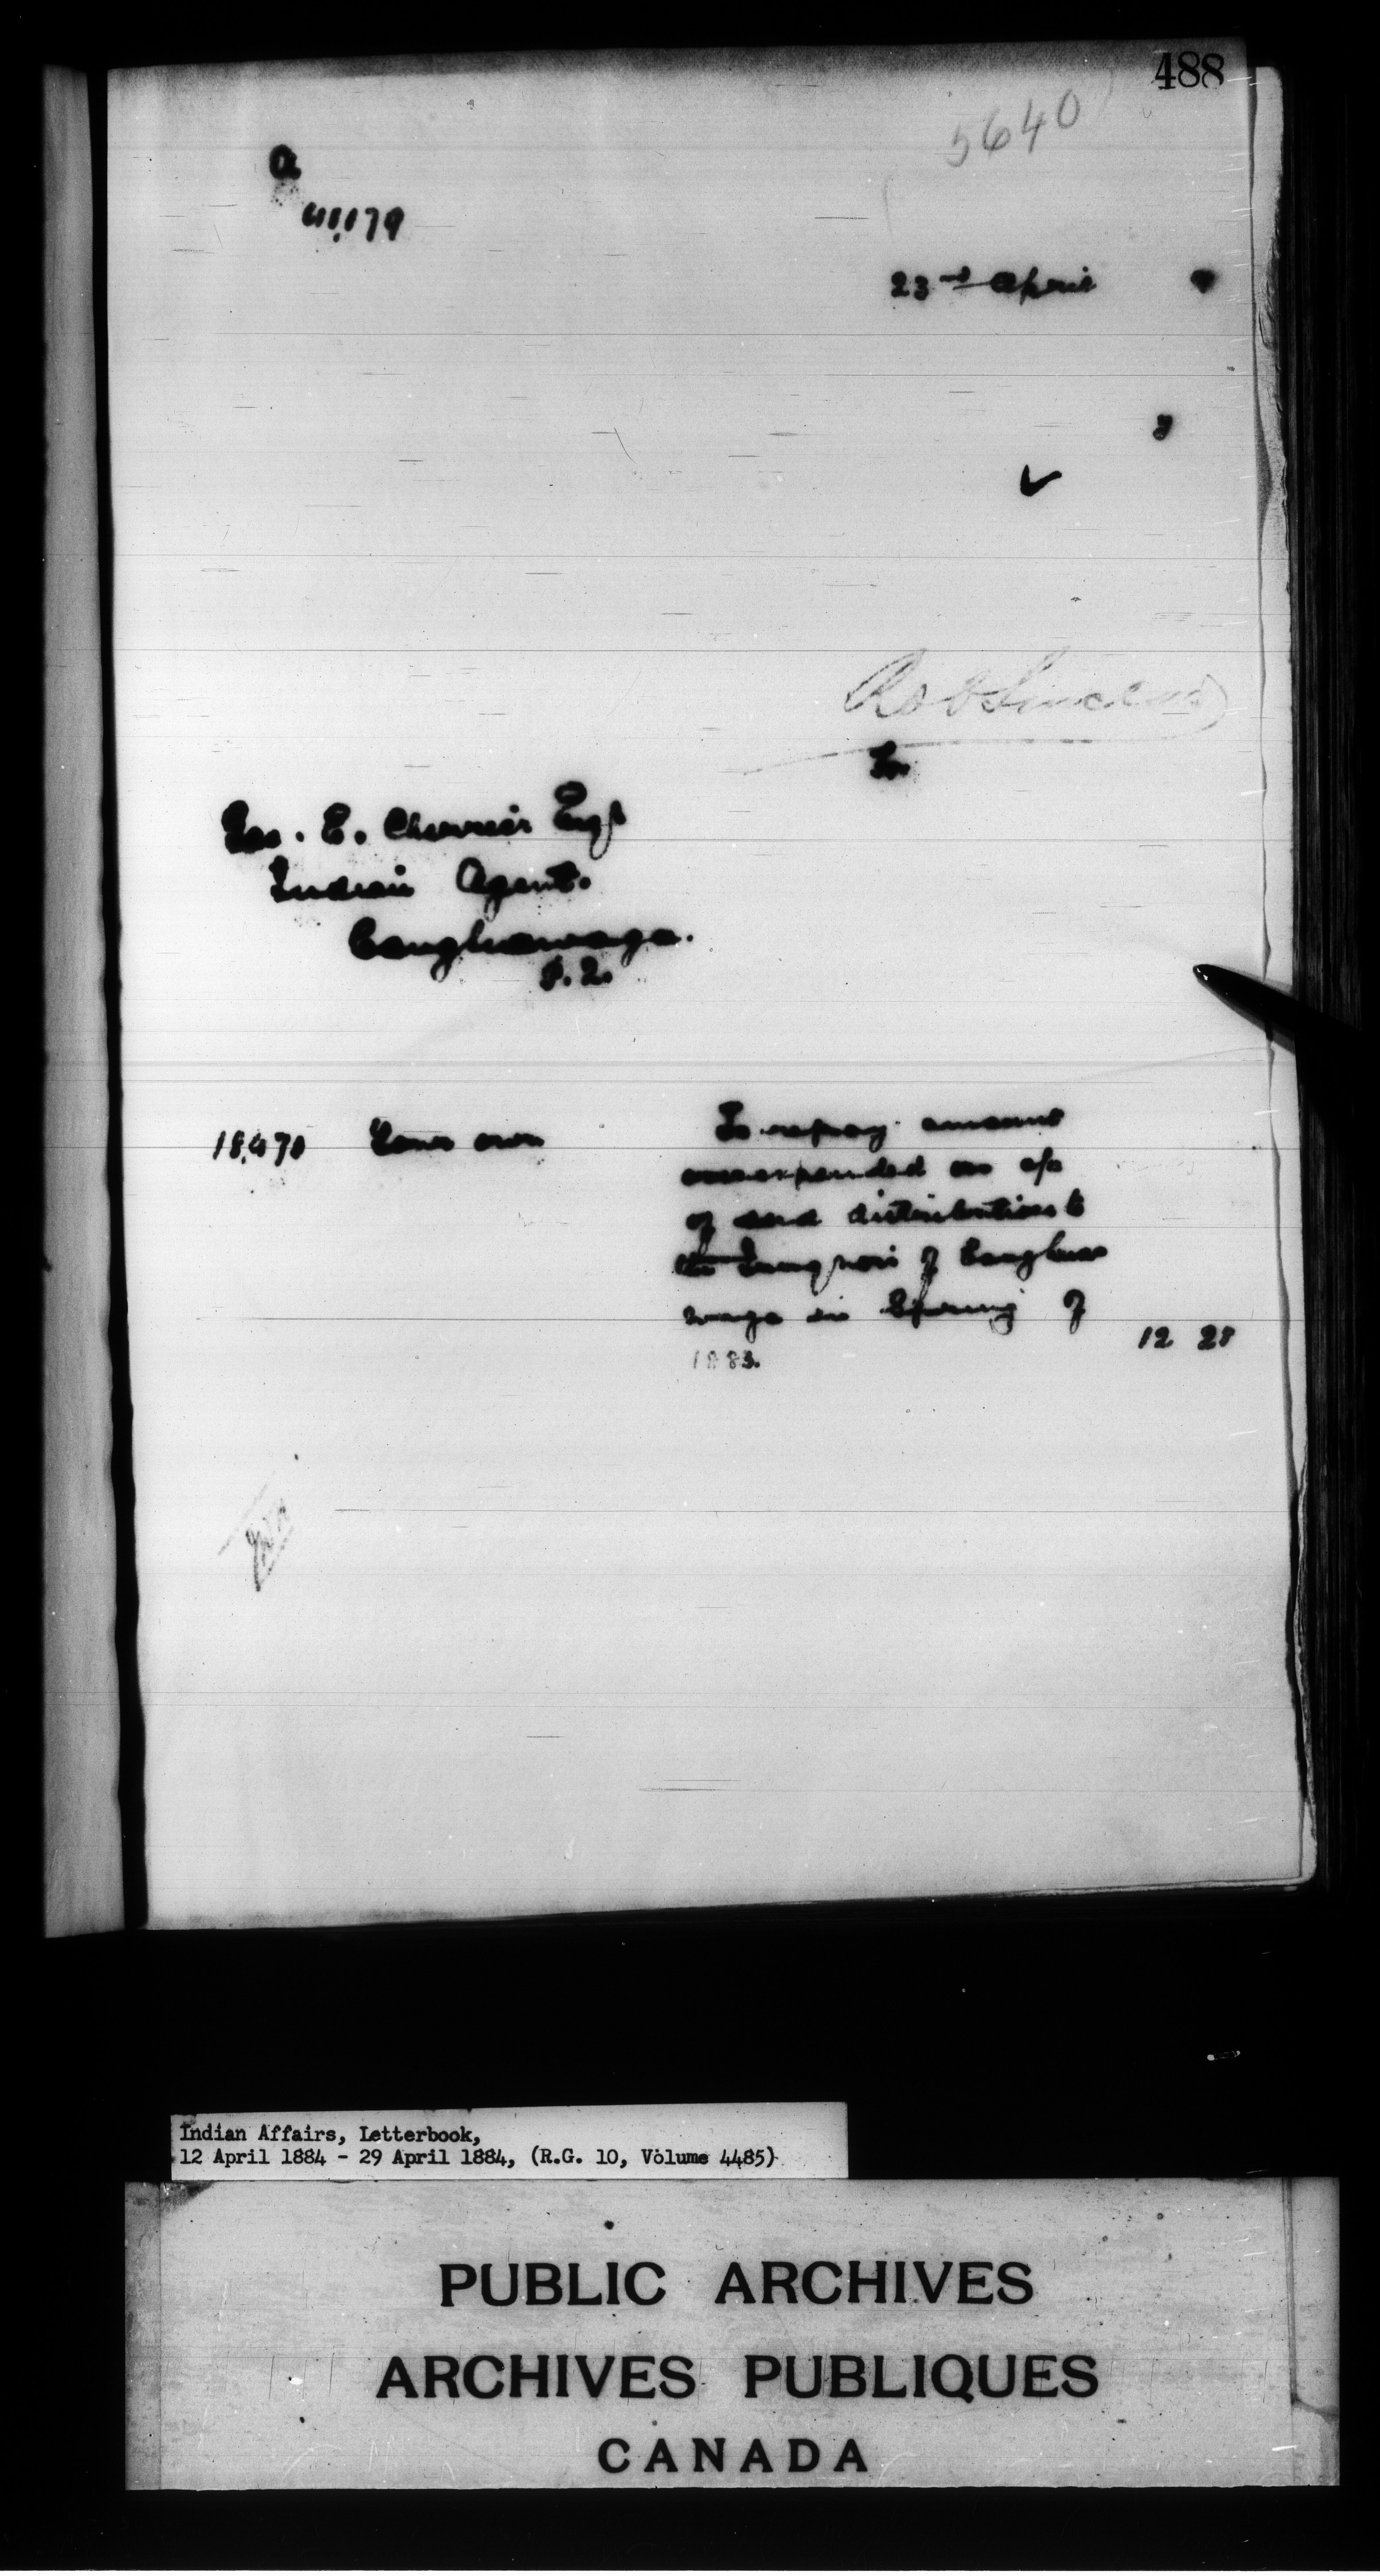 488
5640
a
23rd April 4
3
Rob Sinclair
For
Geo. E. Cherrier Esqr
Indian Agent.
Caughnawaga.
P.Q.
18,470 Your own To repay amount
overexpended on a/c
of seed distributions to
the Iroquois of Caughna
waga in Spring of
1883. 12 28
Indian Affairs, Letterbook,
12 April 1884 - 29 April 1884, (R.G. 10, Volume 4485)
PUBLIC ARCHIVES
ARCHIVES PUBLIQUES
CANADA